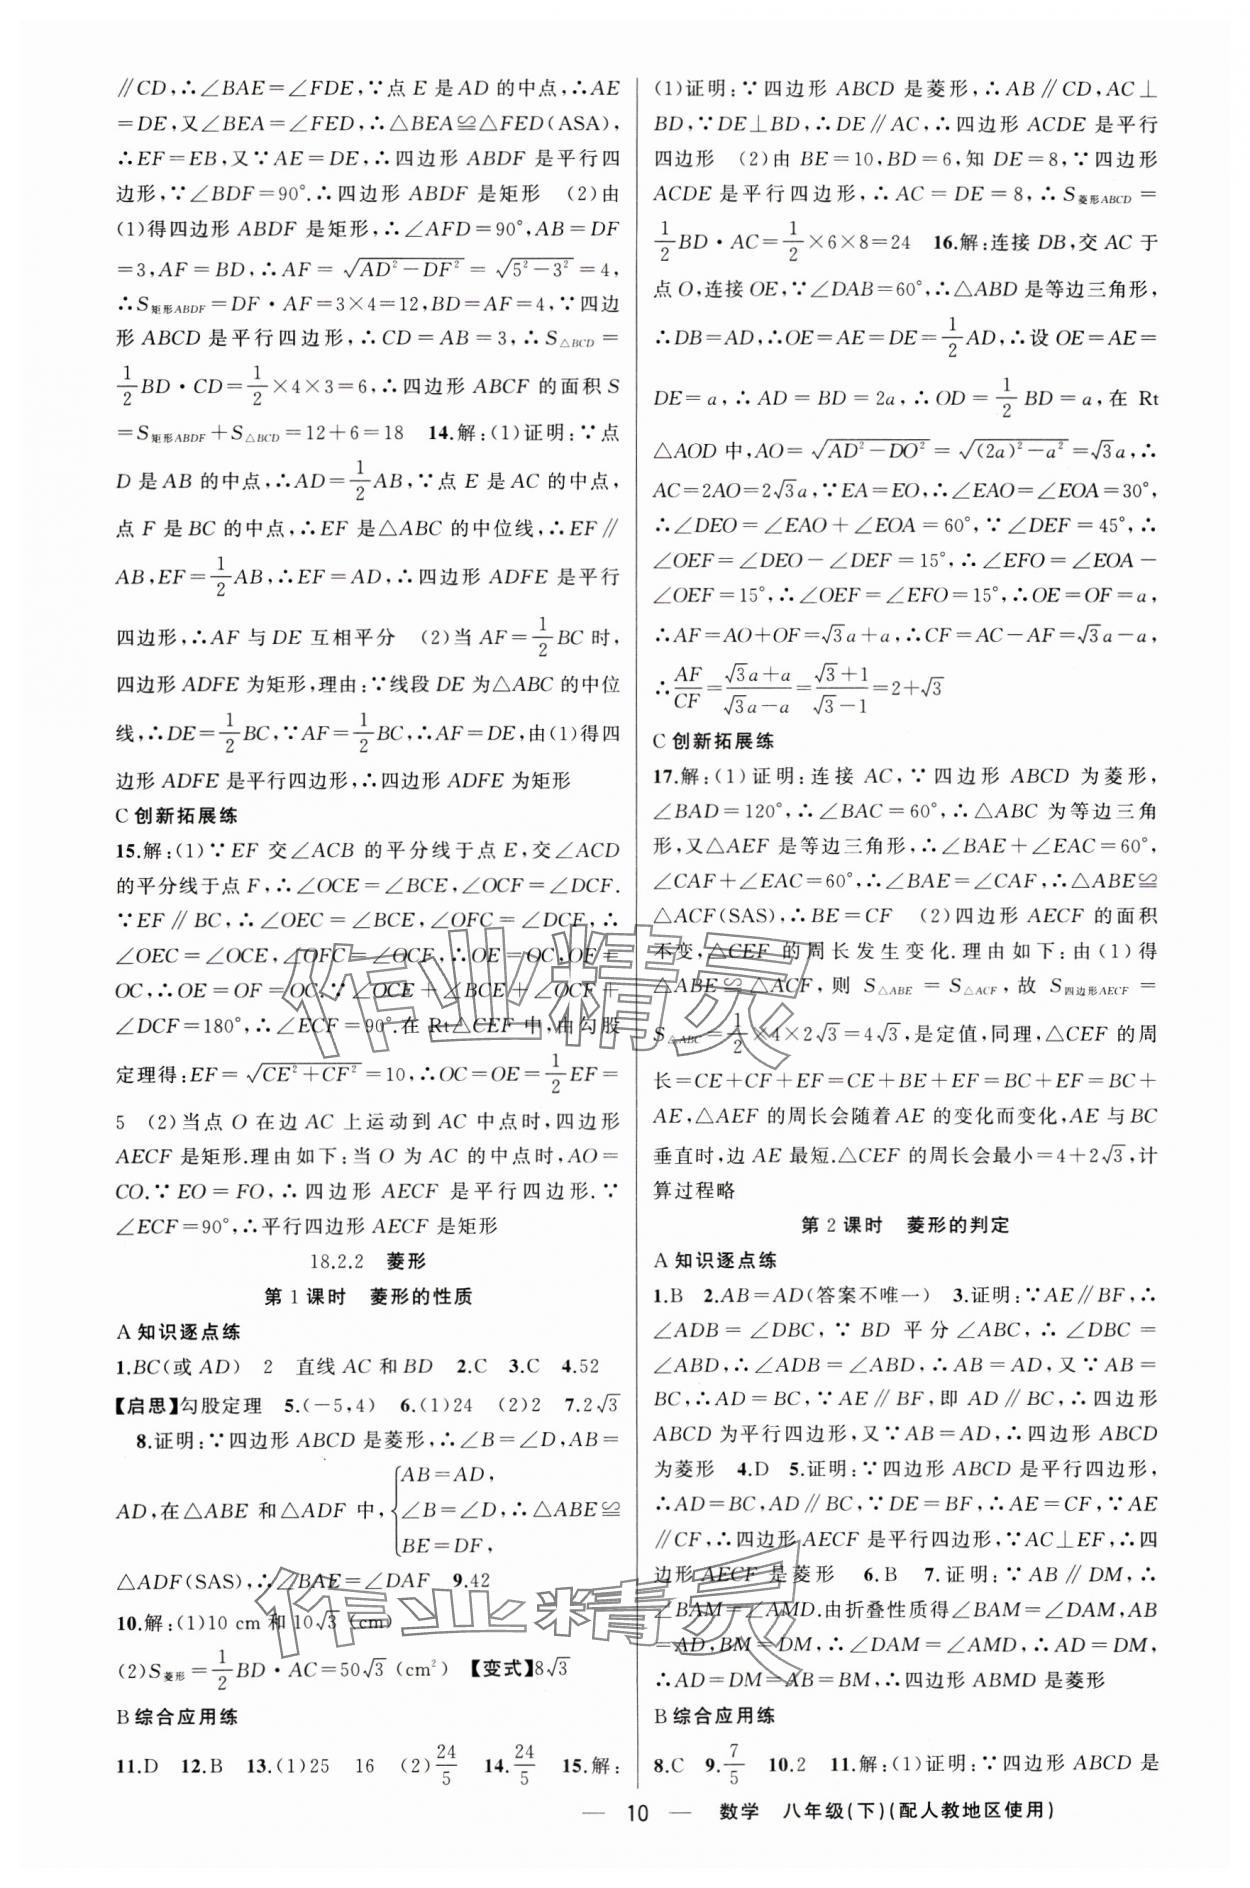 ∥CD,∴∠BAE=∠FDE,∵点 E 是 AD 的中点,∴AE
=DE,又∠BEA=∠FED,∴△BEA≌△FED(ASA),
∴EF=EB,又∵AE=DE,∴四边形 ABDF 是平行四
边形,∵∠BDF=90°.∴四边形 ABDF 是矩形 (2)由
(1)得四边形 ABDF 是矩形,∴∠AFD=90°,AB=DF
=3,AF=BD,∴AF=√(AD²-DF²)=√(5²-3²)=4,
∴S矩形ABDF=DF·AF=3×4=12,BD=AF=4,∵四边
形 ABCD 是平行四边形,∴CD=AB=3,∴S△BCD=
1/2BD·CD=1/2×4×3=6,∴四边形 ABCF 的面积 S
=S矩形ABDF+S△BCD=12+6=18 14.解:(1)证明:∵点
D 是 AB 的中点,∴AD=1/2AB,∵点 E 是 AC 的中点,
点 F 是 BC 的中点,∴EF 是△ABC 的中位线,∴EF∥
AB,EF=1/2AB,∴EF=AD,∴四边形 ADFE 是平行
四边形,∴AF 与 DE 互相平分 (2)当 AF=1/2BC 时,
四边形 ADFE 为矩形,理由:∵线段 DE 为△ABC 的中位
线,∴DE=1/2BC,∵AF=1/2BC,∴AF=DE,由(1)得四
边形 ADFE 是平行四边形,∴四边形 ADFE 为矩形
C 创新拓展练
15.解:(1)∵EF 交∠ACB 的平分线于点 E,交∠ACD
的平分线于点 F,∴∠OCE=∠BCE,∠OCF=∠DCF.
∵EF∥BC,∴∠OEC=∠BCE,∠OFC=∠DCF,∴
∠OEC=∠OCE,∠OFC=∠OCF,∴OE=OC,OF=
OC,∴OE=OF=OC.∵∠OCE+∠BCE+∠OCF+
∠DCF=180°,∴∠ECF=90°.在 Rt△CEF 中,由勾股
定理得:EF=√(CE²+CF²)=10,∴OC=OE=1/2EF=
5 (2)当点 O 在边 AC 上运动到 AC 中点时,四边形
AECF 是矩形.理由如下:当 O 为 AC 的中点时,AO=
CO.∵EO=FO,∴四边形 AECF 是平行四边形.∵
∠ECF=90°,∴平行四边形 AECF 是矩形
18.2.2 菱形
第1课时 菱形的性质
A 知识逐点练
1.BC(或 AD) 2 直线 AC 和 BD 2.C 3.C 4.52
【启思】勾股定理 5.(-5,4) 6.(1)24 (2)2 7.2√3
8.证明:∵四边形 ABCD 是菱形,∴∠B=∠D,AB=
AD,在△ABE 和△ADF 中,{AB=AD, ∠B=∠D, BE=DF, ∴△ABE≌
△ADF(SAS),∴∠BAE=∠DAF 9.42
10.解:(1)10 cm 和 10√3 (cm)
(2)S菱形=1/2BD·AC=50√3 (cm²) 【变式】8√3
B 综合应用练
11.D 12.B 13.(1)25 16 (2)24/5 14.24/5 15.解:
(1)证明:∵四边形 ABCD 是菱形,∴AB∥CD,AC⊥
BD,∵DE⊥BD,∴DE∥AC,∴四边形 ACDE 是平行
四边形 (2)由 BE=10,BD=6,知 DE=8,∵四边形
ACDE 是平行四边形,∴AC=DE=8,∴S菱形ABCD=
1/2BD·AC=1/2×6×8=24 16.解:连接 DB,交 AC 于
点 O,连接 OE,∵∠DAB=60°,∴△ABD 是等边三角形,
∴DB=AD,∴OE=AE=DE=1/2AD,∴设 OE=AE=
DE=a,∴AD=BD=2a,∴OD=1/2BD=a,在 Rt
△AOD 中,AO=√(AD²-DO²)=√((2a)²-a²)=√3a,∴
AC=2AO=2√3a,∵EA=EO,∴∠EAO=∠EOA=30°,
∴∠DEO=∠EAO+∠EOA=60°,∵∠DEF=45°,∴
∠OEF=∠DEO-∠DEF=15°,∴∠EFO=∠EOA-
∠OEF=15°,∴∠OEF=∠EFO=15°,∴OE=OF=a,
∴AF=AO+OF=√3a+a,∴CF=AC-AF=√3a-a,
∴AF/CF=(√3a+a)/(√3a-a)=(√3+1)/(√3-1)=2+√3
C 创新拓展练
17.解:(1)证明:连接 AC,∵四边形 ABCD 为菱形,
∠BAD=120°,∴∠BAC=60°,∴△ABC 为等边三角
形,又△AEF 是等边三角形,∴∠BAE+∠EAC=60°,
∠CAF+∠EAC=60°,∴∠BAE=∠CAF,∴△ABE≌
△ACF(SAS),∴BE=CF (2)四边形 AECF 的面积
不变,△CEF 的周长发生变化.理由如下:由(1)得
△ABE≌△ACF,则 S△ABE=S△ACF,故 S四边形AECF=
S△ABC=1/2×4×2√3=4√3,是定值,同理,△CEF 的周
长=CE+CF+EF=CE+BE+EF=BC+EF=BC+
AE,△AEF 的周长会随着 AE 的变化而变化,AE 与 BC
垂直时,边 AE 最短.△CEF 的周长会最小=4+2√3,计
算过程略
第2课时 菱形的判定
A 知识逐点练
1.B 2.AB=AD(答案不唯一) 3.证明:∵AE∥BF,∴
∠ADB=∠DBC,∵BD 平分∠ABC,∴∠DBC=
∠ABD,∴∠ADB=∠ABD,∴AB=AD,又∵AB=
BC,∴AD=BC,∵AE∥BF,即 AD∥BC,∴四边形
ABCD 为平行四边形,又∵AB=AD,∴四边形 ABCD
为菱形 4.D 5.证明:∵四边形 ABCD 是平行四边形,
∴AD=BC,AD∥BC,∵DE=BF,∴AE=CF,∵AE
∥CF,∴四边形 AECF 是平行四边形,∵AC⊥EF,∴四
边形 AECF 是菱形 6.B 7.证明:∵AB∥DM,∴
∠BAM=∠AMD.由折叠性质得∠BAM=∠DAM,AB
=AD,BM=DM,∴∠DAM=∠AMD,∴AD=DM,
∴AD=DM=AB=BM,∴四边形 ABMD 是菱形
B 综合应用练
8.C 9.7/5 10.2 11.解:(1)证明:∵四边形 ABCD 是
— 10 — 数学 八年级(下)(配人教地区使用)
作业精灵
作业精灵